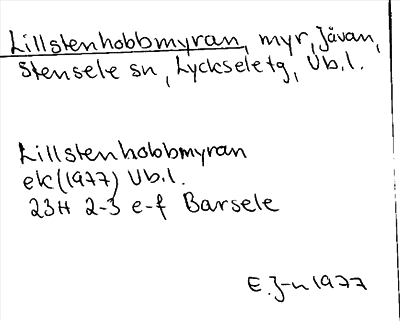 Lillstenhobbmyran, myr, Jåvan,
Stensele sn, Lycksele tg, Vb.l.
Lillstenhobbmyran
ek (1977) Vb.l.
23H 2-3 e-f Barsele
E.J-n 1977